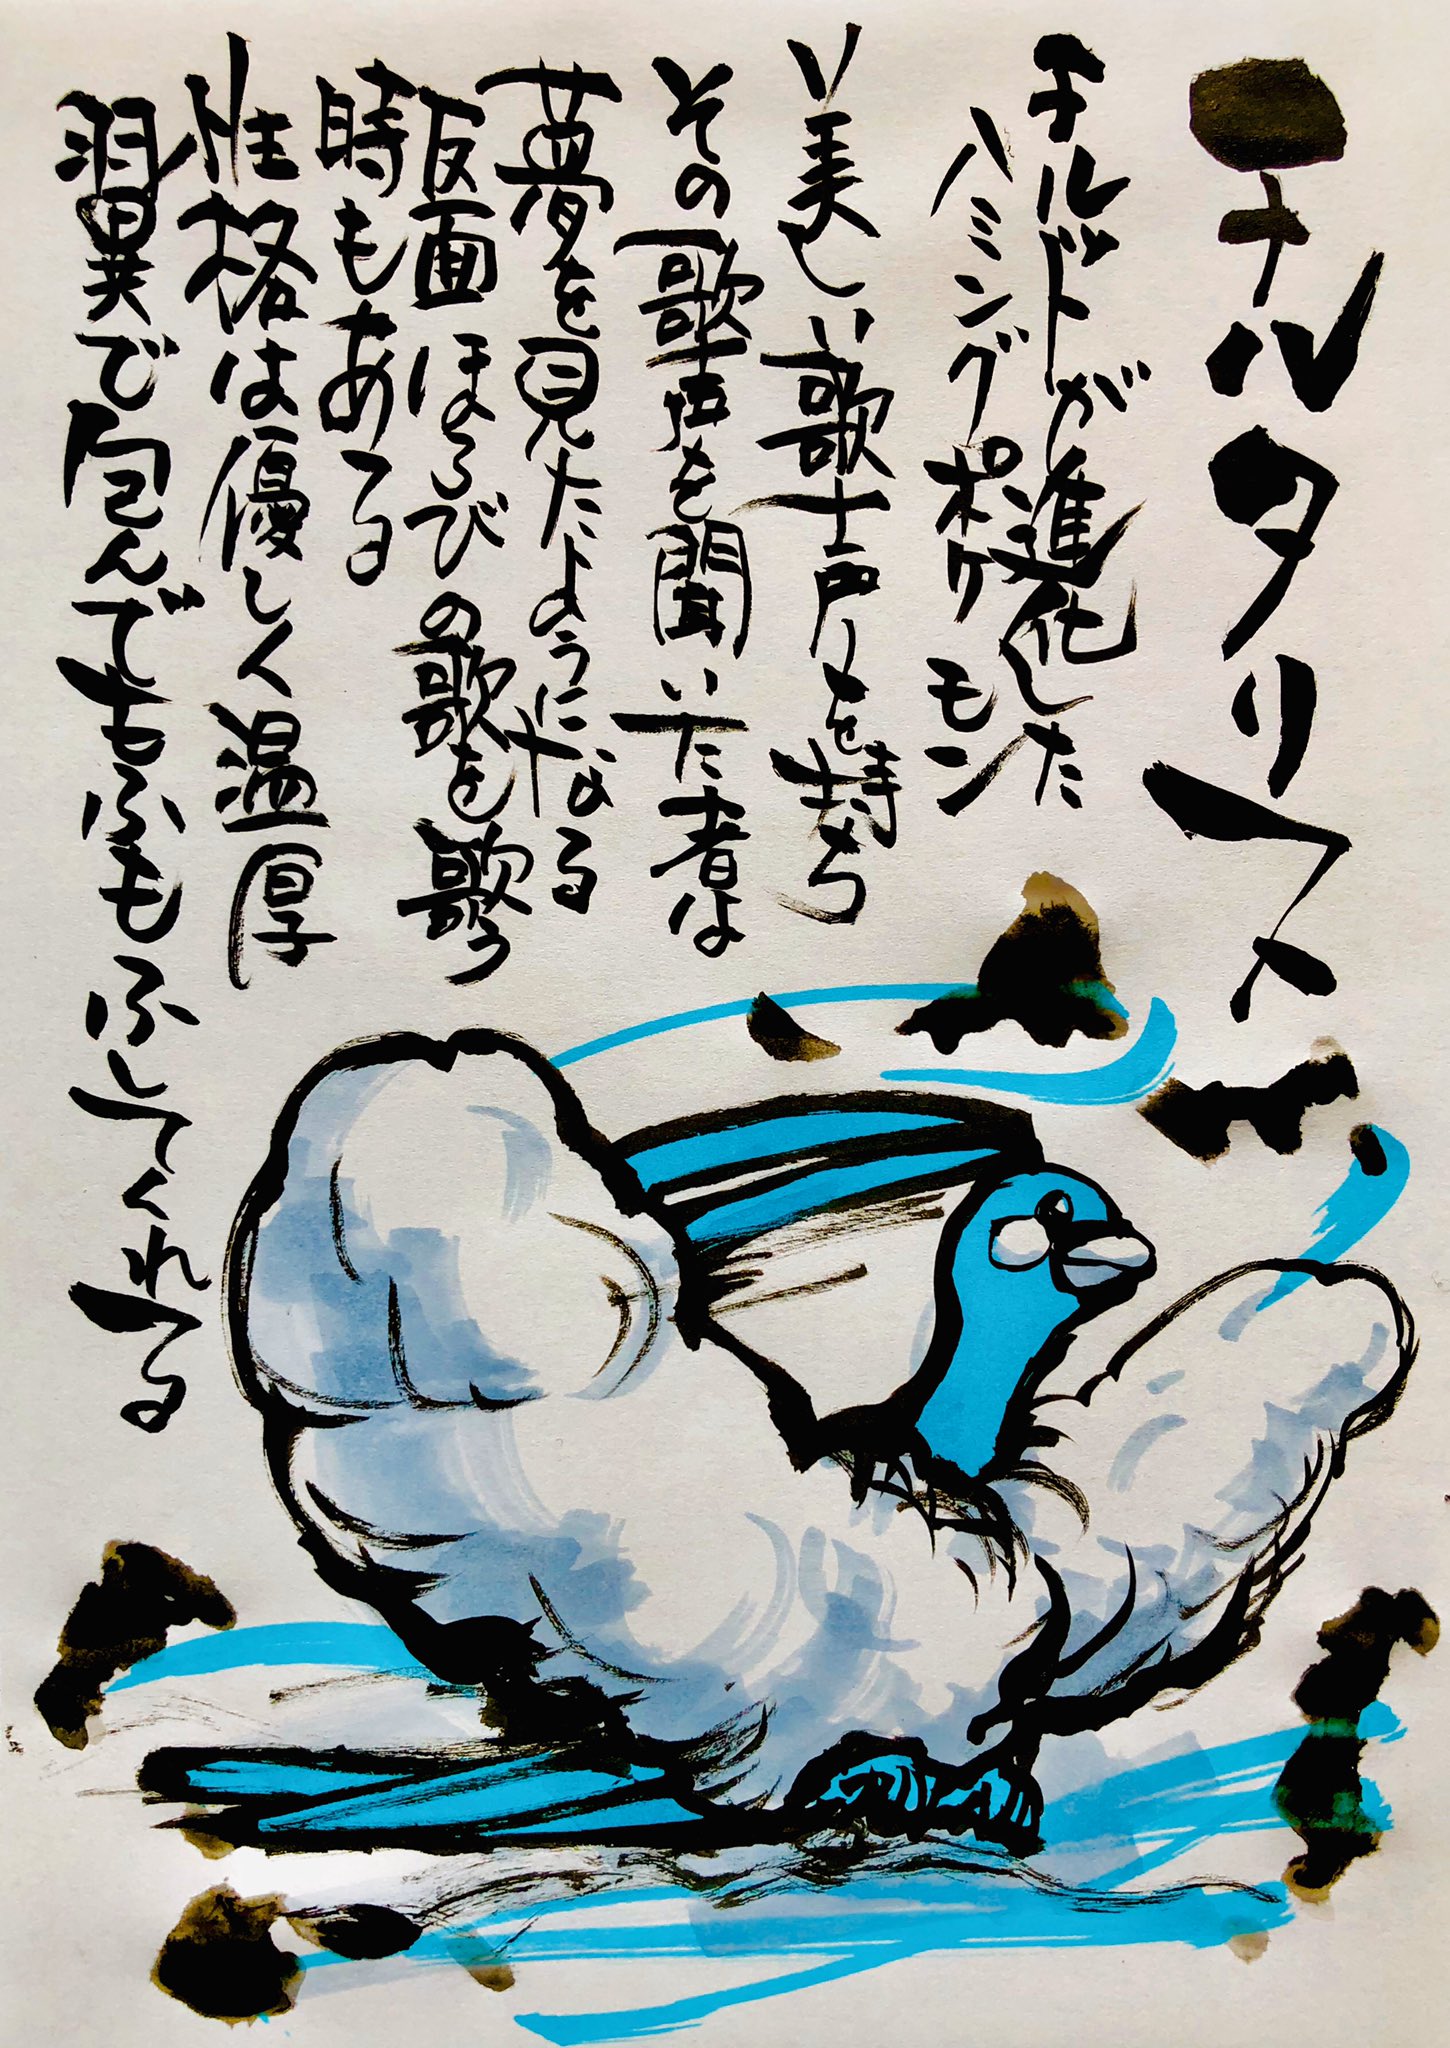 チルタリス
チルットが進化した
ハミングポケモン
美しい歌声を持ち
その歌声を聞いた者は
夢を見たようになる
反面ほろびの歌を歌う
時もある
性格は優しく温厚
翼で包んでもふもふしてくれる